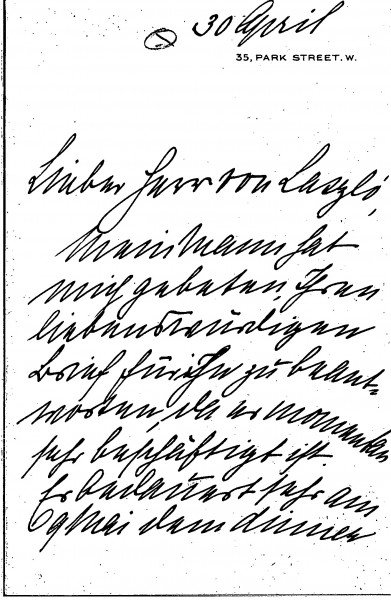 30 April
35, PARK STREET. W.
Lieber Herr von Laszló,
Mein Mann hat
mich gebeten, Ihren
liebenswürdigen
Brief für ihn zu beant=
worten, da er momentan
sehr beschäftigt ist.
Er bedauert sehr am
9 Mai dem dinner